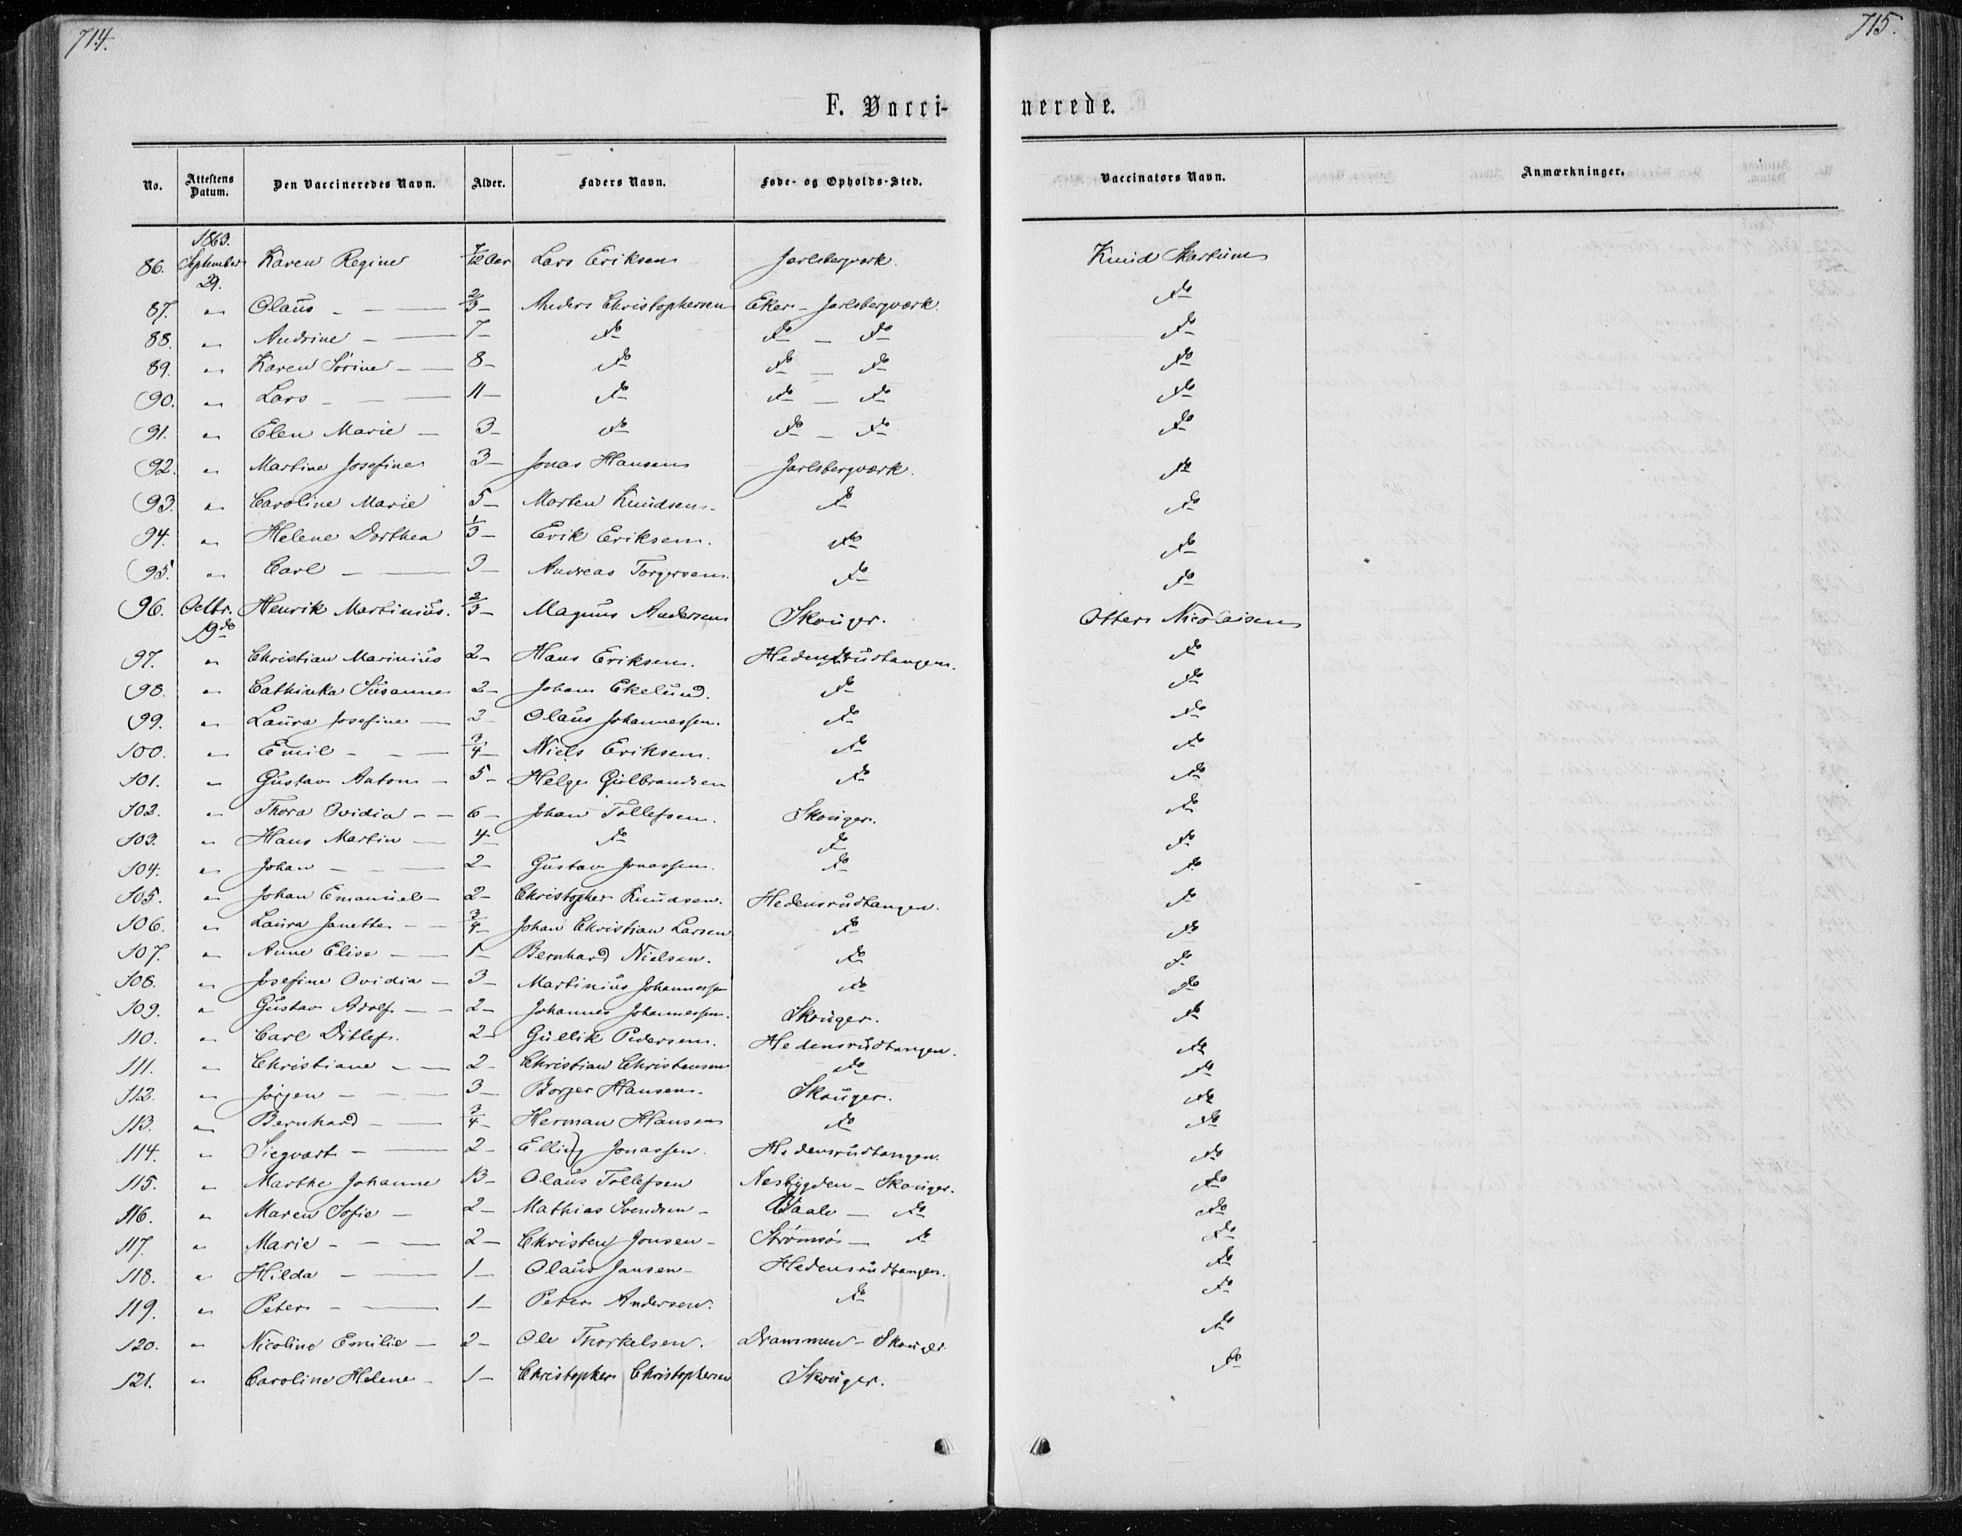 714.
715.
F. Vacci-
nerede.
No. Attestens Datum. Den Vaccineredes Navn. Alder. Faders Navn. Føde- og Opholds-Sted. Vaccinators Navn. Anmærkninger.
1863.
86. September 29. Karen Regine 7/12 Aar Lars Eriksen Jarlsbergværk. Knud
87. " Olaus 2/3 Anders Christophersen Eker - Jarlsbergværk. do
88. " Andrine 7 do do - do do
89. " Karen Sørine 8 do do - do do
90. " Lars 11 do do - do do
91. " Elen Marie 3 do do - do do
92. " Martine Josefine 3 Jonas Hansen Jarlsbergværk. do
93. " Caroline Marie 5 Morten Knudsen do do
94. " Helene Dorthea 1/3 Erik Eriksen. do do
95. " Carl Andreas Torgersen. do do
96. Octbr. 19de Henrik Martinius. 2/3 Magnus Andersen Skouger. Otter Nicolaisen
97. " Christian Marinius 2 Hans Eriksen. Hedensrudtangen. do
98. " Cathinka Susanne 2 Johan Ekelund. do do
99. " Laura Josefine 2 Olaus Johannessen. do do
100. " Emil 3/4 Niels Eriksen. do do
101. " Gustav Anton 5 Helge Gulbrandsen do do
102. " Thora Ovidia 6 Johan Tollefsen. Skouger. do
103. " Hans Martin 4 do do do
104. " Johan 2 Gustav Jonassen. do do
105. " Johan Emanuel 2 Christopher Knudsen. Hedensrudtangen. do
106. " Laura Janette 3/4 Johan Christian Larsen do do
107. " Anne Elise 1 Bernhard Nielsen. do do
108. " Josefine Ovidia 3 Martinius Johannessen do do
109. " Gustav Adolf 2 Johannes Johannessen. Skouger. do
110. " Carl Ditlef. 2 Gullik Pedersen. Hedensrudtangen. do
111. " Christiane 2 Christian Christensen do do
112. " Jørgen 3 Borger Hansen. Skouger. do
113. " Bernhard 3/4 Herman Hansen do do
114. " Siegvart 2 Elling Jonassen. Hedensrudtangen. do
115. " Marthe Johanne 13 Olaus Tollefsen Nesbygden - Skouger. do
116. " Maren Sofie 2 Mathias Svendsen Vaale - do do
117. " Marie 2 Christen Jonsen Strømsø - do do
118. " Hilda 1 Olaus Jansen Hedensrudtangen. do
119. " Peter 1 Peter Andersen. do do
120. " Nicoline Emilie 2 Ole Thorkelsen. Drammen - Skouger do
121. " Caroline Helene 1 Christopher Christophersen Skouger. do